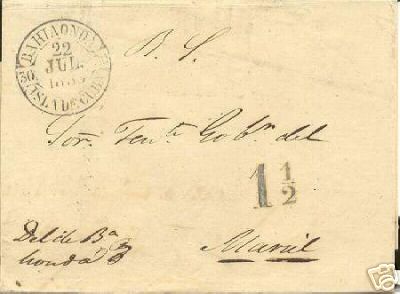 BAHIA ONDA
22
JUL.
ISLA DE CUBA
B. S.
Sor. Tente. Gobor. del
1 1/2
Mariel
Del de Ba
honda